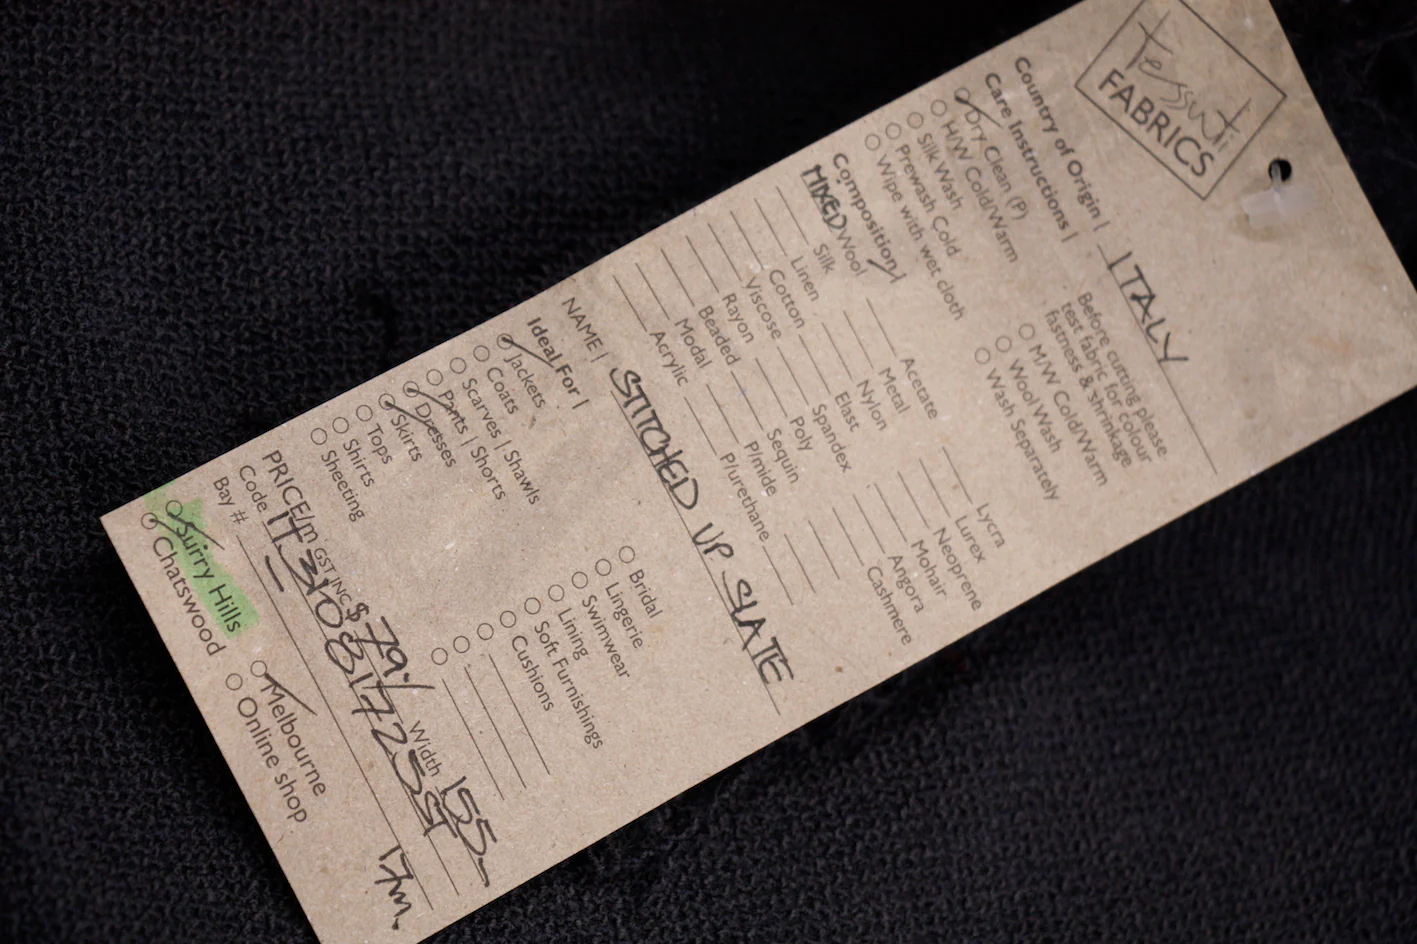 tessuti
FABRICS
Country of Origin | ITALY
Care Instructions |
Before cutting please
test fabric for colour
fastness & shrinkage
Dry Clean (P)
H/W Cold/Warm
Silk Wash
Prewash Cold
Wipe with wet cloth
M/W Cold/Warm
Wool Wash
Wash Separately
Composition |
MIXED Wool
Silk
Linen
Cotton
Viscose
Rayon
Beaded
Modal
Acrylic
Acetate
Metal
Nylon
Elast
Spandex
Poly
Sequin
P/mide
P/urethane
Lycra
Lurex
Neoprene
Mohair
Angora
Cashmere
NAME | STITCHED UP SLATE
Ideal For |
Jackets
Coats
Scarves | Shawls
Pants | Shorts
Dresses
Skirts
Tops
Shirts
Sheeting
Bridal
Lingerie
Swimwear
Lining
Soft Furnishings
Cushions
PRICE/m GST INC $ 79 Width 155
Code
Bay # 17m.
Surry Hills
Chatswood
Melbourne
Online shop